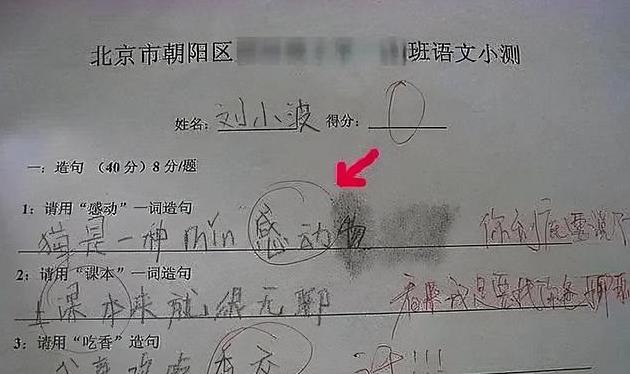 北京市朝阳区 班语文小测
姓名：刘小波 得分：0
一：造句（40分）8分/题
1：请用“感动”一词造句
猫是一种 min 感动物 你到底
2：请用“课本”一词造句
上课本来就很无聊 看样我是要找你爸聊聊
3：请用“吃香”造句
香 !!!